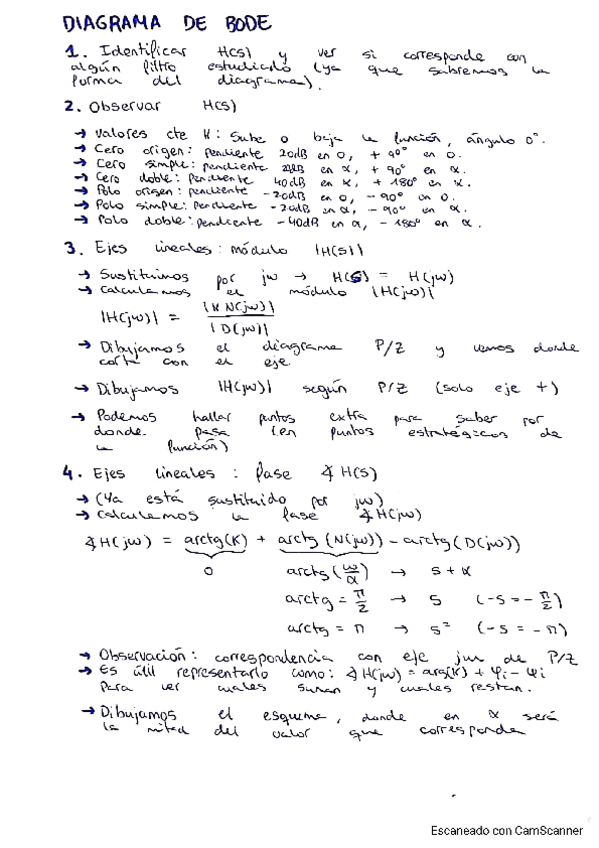 DIAGRAMA DE BODE
1. Identificar H(s) y ver si corresponde con
algún filtro estudiado (ya que sabremos la
forma del diagrama).
2. Observar H(s)
→ Valores cte K: Sube o baja la función, ángulo 0°.
→ Cero origen: pendiente 20dB en 0, + 90° en 0.
→ Cero simple: pendiente 20dB en α, + 90° en α.
→ Cero doble: pendiente 40dB en α, + 180° en α.
→ Polo origen: pendiente -20dB en 0, - 90° en 0.
→ Polo simple: pendiente -20dB en α, - 90° en α.
→ Polo doble: pendiente -40dB en α, - 180° en α.
3. Ejes lineales: módulo |H(s)|
→ Sustituimos por jw → H(s) = H(jw)
→ Calculamos el módulo |H(jw)|
|H(jw)| = |K N(jw)| / |D(jw)|
→ Dibujamos el diagrama P/Z y vemos donde
corte con el eje.
→ Dibujamos |H(jw)| según P/Z (solo eje +)
→ Podemos hallar puntos extra para saber por
donde pasa (en puntos estratégicos de
la función)
4. Ejes lineales: fase ∢H(s)
→ (Ya está sustituido por jw)
→ Calculamos la fase ∢H(jw)
∢H(jw) = arctg(K) + arctg(N(jw)) - arctg(D(jw))
0 arctg(w/α) → s + α
arctg = π/2 → s (-s = - π/2)
arctg = π → s² (-s = - π)
→ Observación: correspondencia con eje jw de P/Z
→ Es útil representarlo como: ∢H(jw) = arg(K) + φi - φi
para ver cuales suman y cuales restan.
→ Dibujamos el esquema, donde en α será
la mitad del valor que corresponda
Escaneado con CamScanner